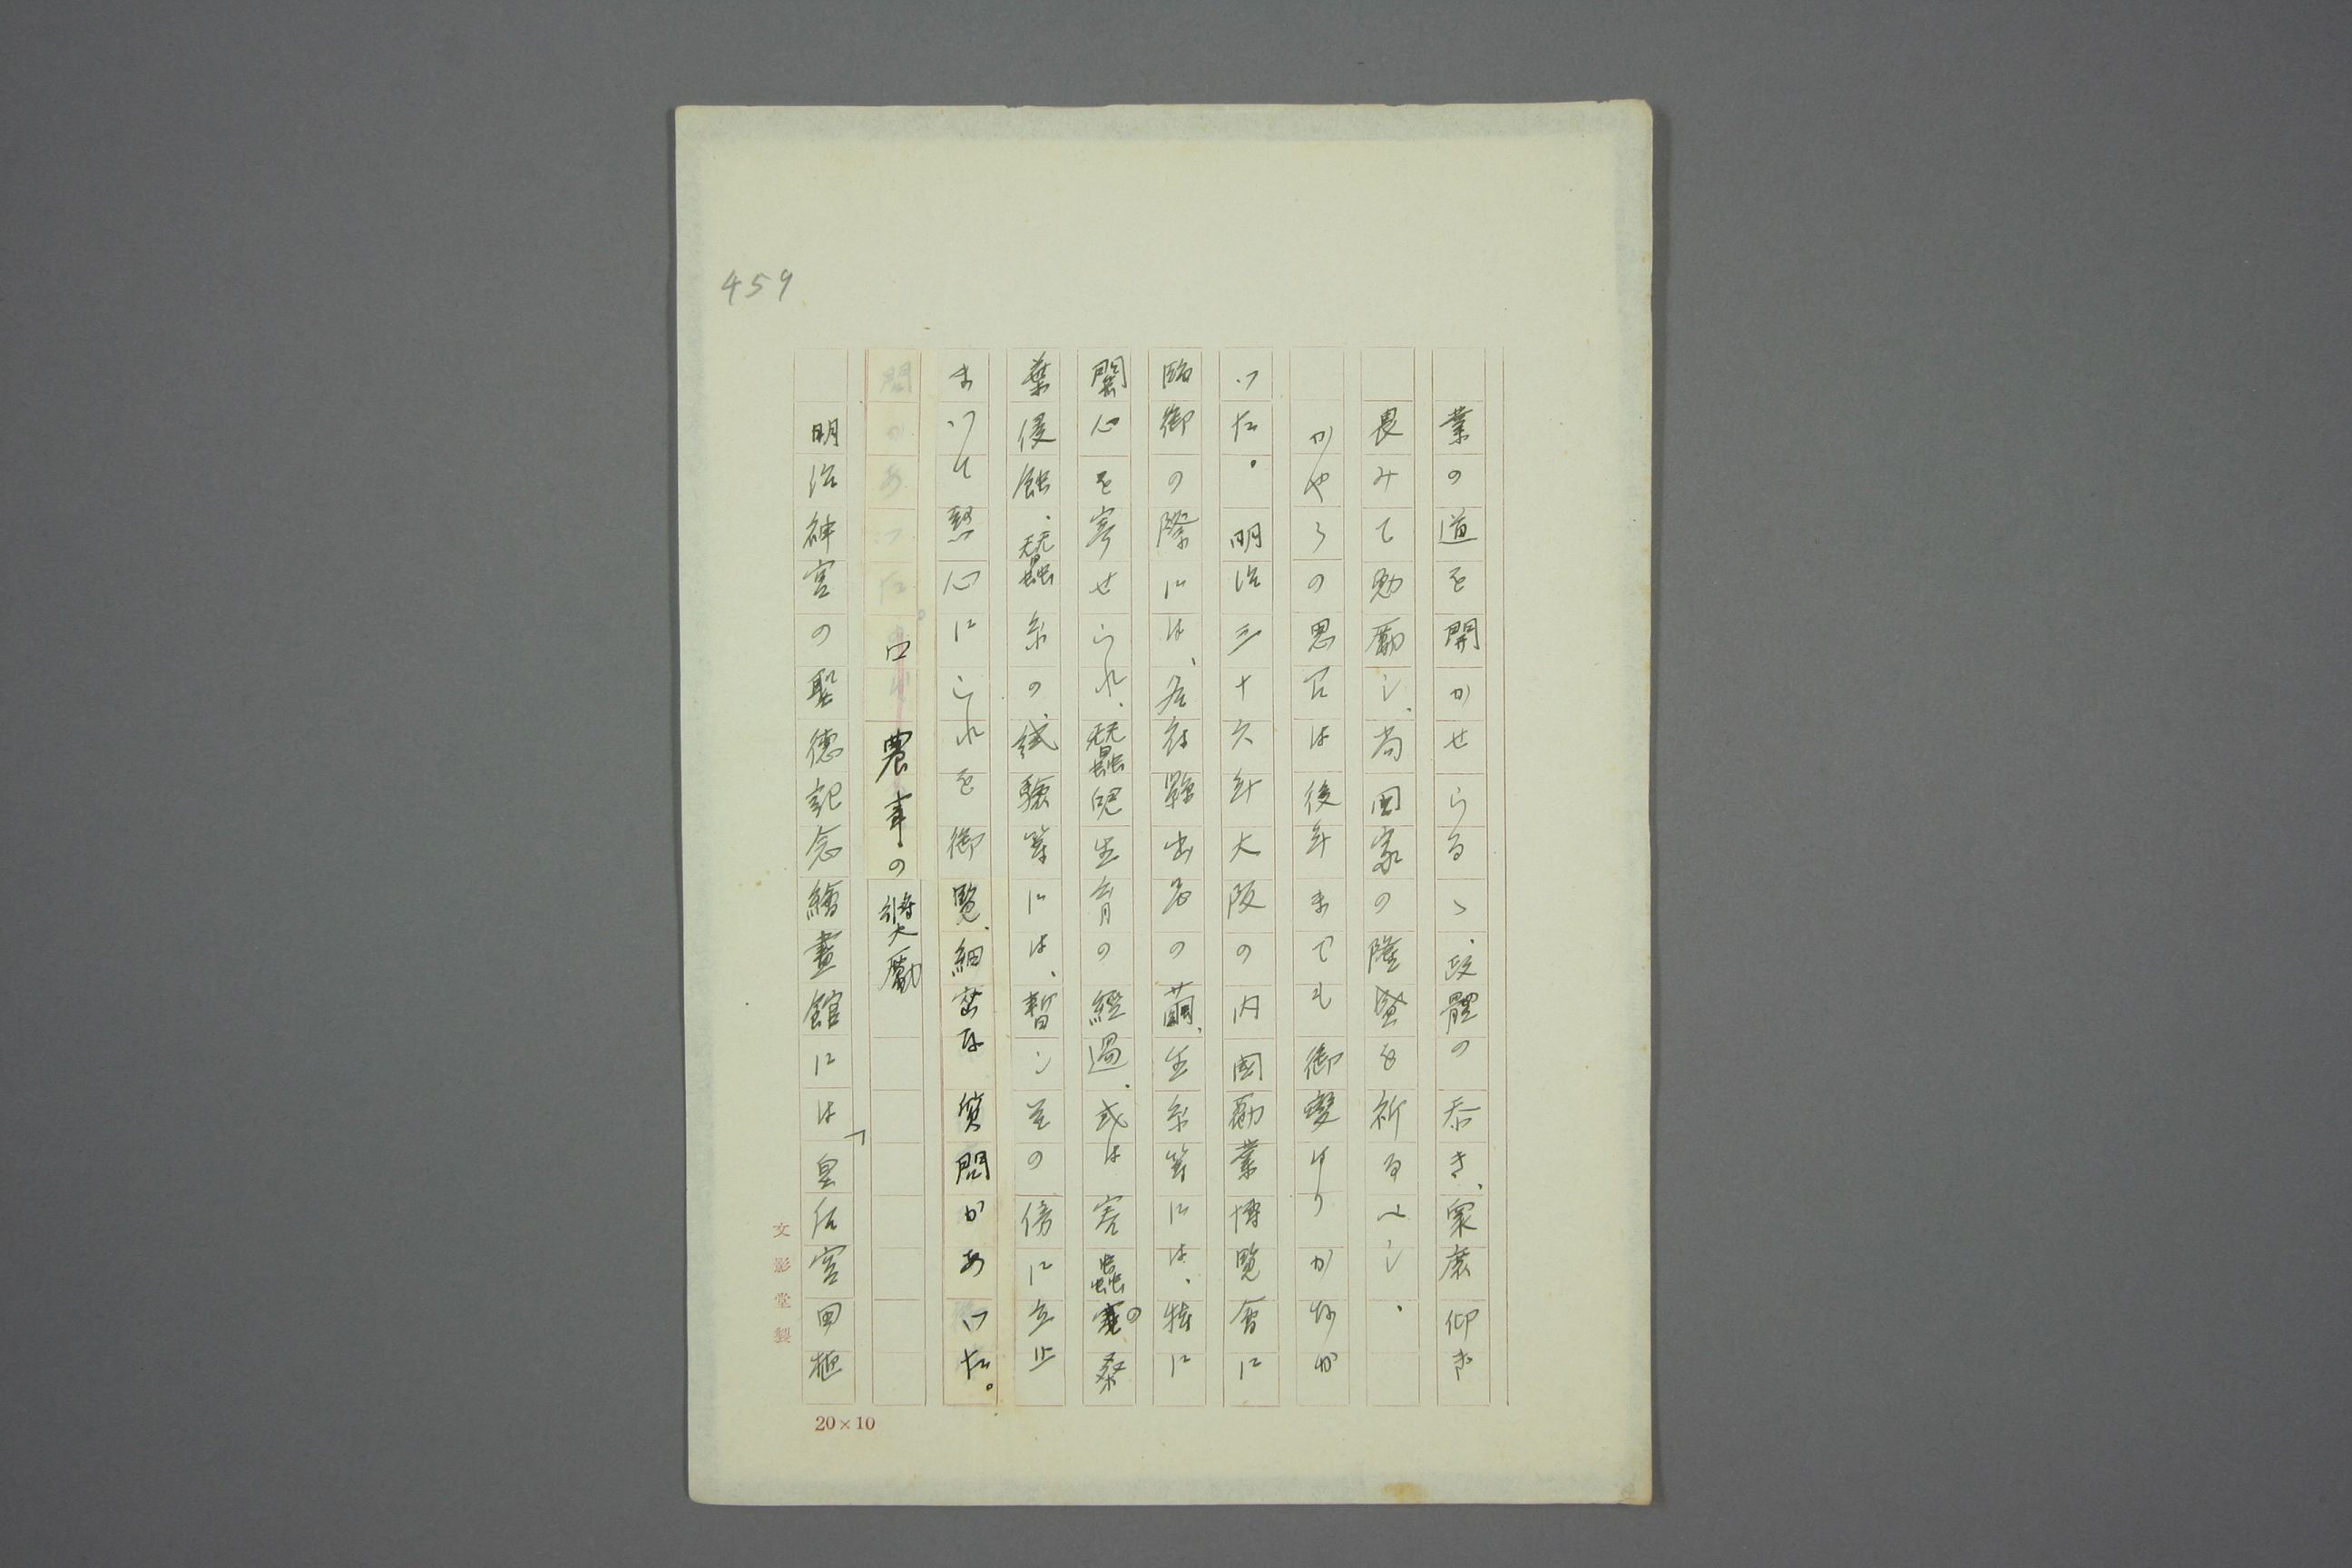 459
業の道を開かせらるゝ、政體の忝き、衆庶仰ぎ
畏みて勉勵し、尚国家の隆盛を祈るべし、
かやうの思召は後年までも御變はりがなか
つた。明治三十六年大阪の内国勧業博覧會に
臨御の際には、各府縣出品の繭、生糸等には、特に
關心を寄せられ、蠶兒生育の經過、或は害蟲の桑
葉侵蝕、蠶糸の試驗等には、暫し其の傍に立止
まつて熱心にこれを御覧、細密な質問があつた。
口農事の奬勵
明治神宮の聖徳記念繪畫館には「皇后宮田植
文影堂製
20×10